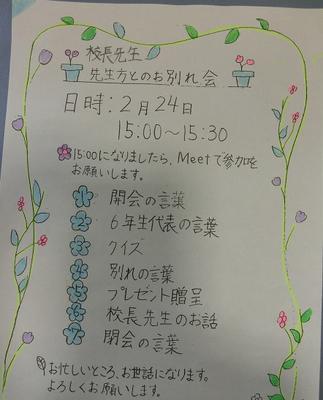 校長先生
先生方とのお別れ会
日時:2月24日
15:00〜15:30
15:00になりましたら、Meetで参加を
お願いします。
1 開会の言葉
2 6年生代表の言葉
3 クイズ
4 別れの言葉
5 プレゼント贈呈
6 校長先生のお話
7 閉会の言葉
お忙しいところ、お世話になります。
よろしくお願いします。